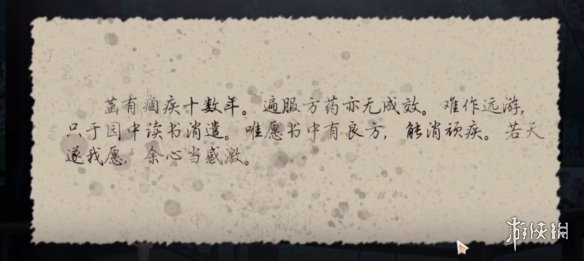 茧有痼疾十数年。遍服方药亦无成效。难作远游，
只于园中读书消遣。唯愿书中有良方，能消顽疾。若天
遂我愿，余心当感激。
游侠网